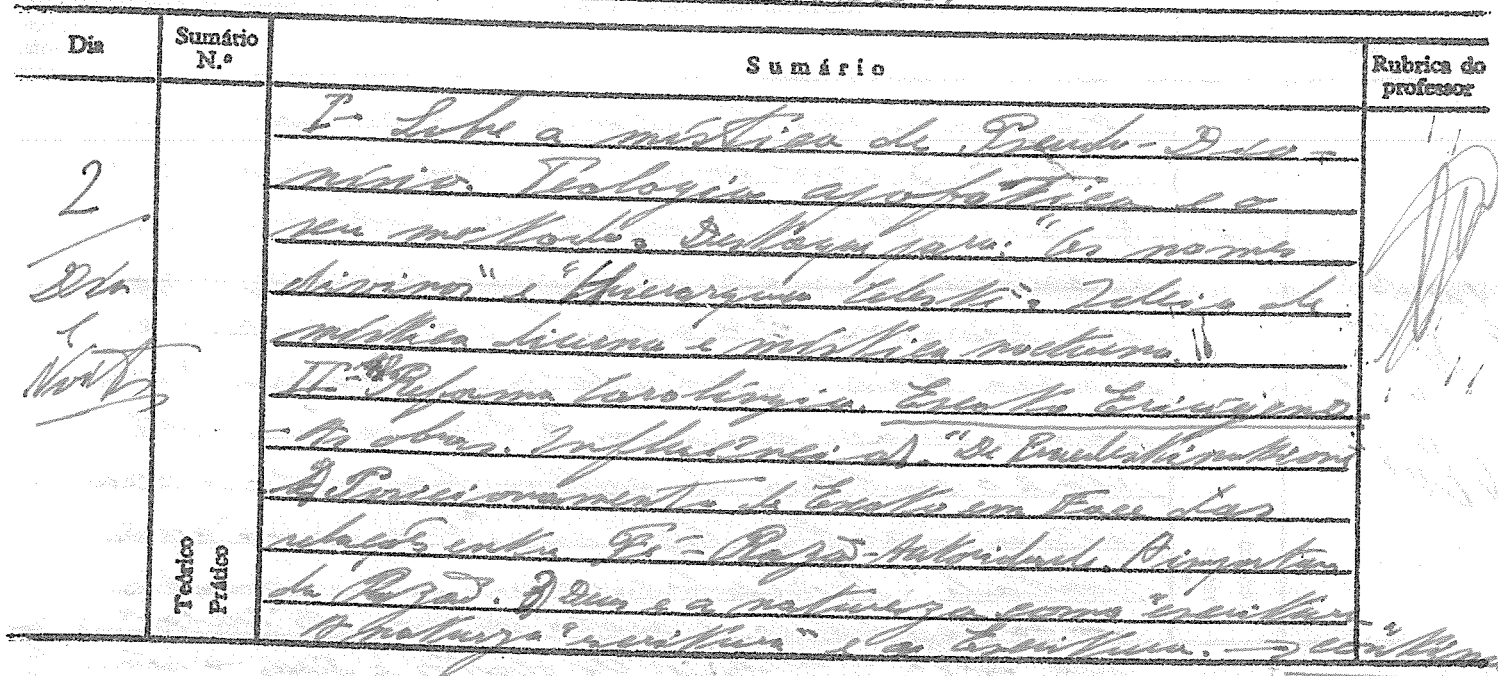 Dia
Sumário N.º
Sumário
Rubrica do professor
2
Dia
e
Noite
Teórico
Prático
I - Sobre a mística de Pseudo-Dio-
nísio. Teologia apofática e o
seu método. Destaque para: "Os nomes
divinos" e "Hierarquia Celeste". Ideia de
mística diurna e mística nocturna.
II - Reforma Carolíngia. Escoto Eriúgena
- As obras. Influências. "De Praedestinatione"
2) Posicionamento de Escoto em Face das
relações entre Fé - Razão - Autoridade. A importân
da Razão. 3) Deus e a natureza como "escritura"
A natureza "escritura" e as Escritura. →